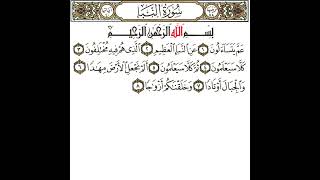 سُورَةُ النَّبَإِ
بِسْمِ اللَّهِ الرَّحْمَٰنِ الرَّحِيمِ
عَمَّ يَتَسَاءَلُونَ ١ عَنِ النَّبَإِ الْعَظِيمِ ٢ الَّذِي هُمْ فِيهِ مُخْتَلِفُونَ ٣
كَلَّا سَيَعْلَمُونَ ٤ ثُمَّ كَلَّا سَيَعْلَمُونَ ٥ أَلَمْ نَجْعَلِ الْأَرْضَ مِهَٰدًا ٦
وَالْجِبَالَ أَوْتَادًا ٧ وَخَلَقْنَٰكُمْ أَزْوَٰجًا ٨